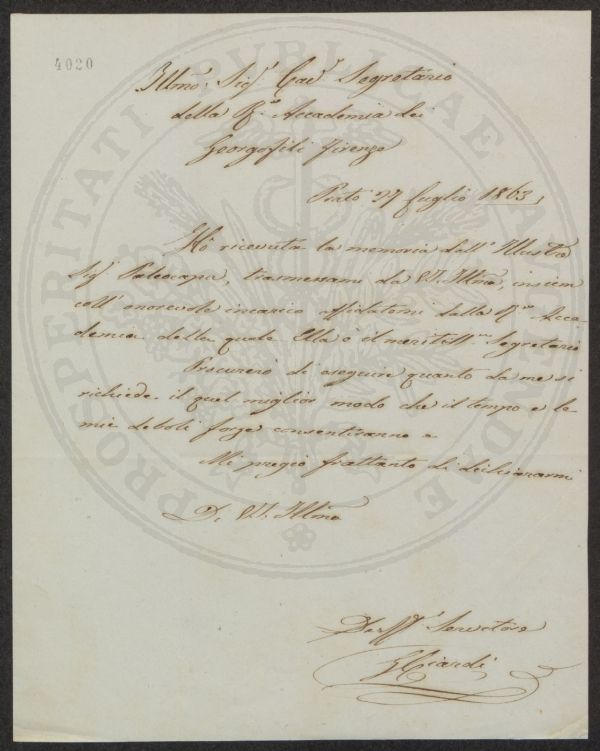 4020
Illmo. Sigr. Cavr. Segretario
della Ra. Accademia dei
Georgofili Firenze
Prato 27 Luglio 1863,
Hò ricevuta la memoria dall' Illustre
Sigr. Paleocapa, trasmessami da V.S. Illma, insiem
coll' onorevole incarico affidatomi dalla Ra. Acca-
demia della quale Ella è il meritmo. Segretario
Procurerò di eseguire quanto da me si
richiede il quel miglior modo che il tempo e le
mie deboli forze consentiranno e
Mi pregio frattanto di dichiararmi
Di V.S. Illma
Servitore
G Ciardi
PROSPERITATI PUBLICAE AUGENDAE